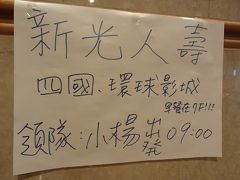 新光人壽
四國、環球影城
早餐在7F!!!
領隊:小楊 出發 09:00